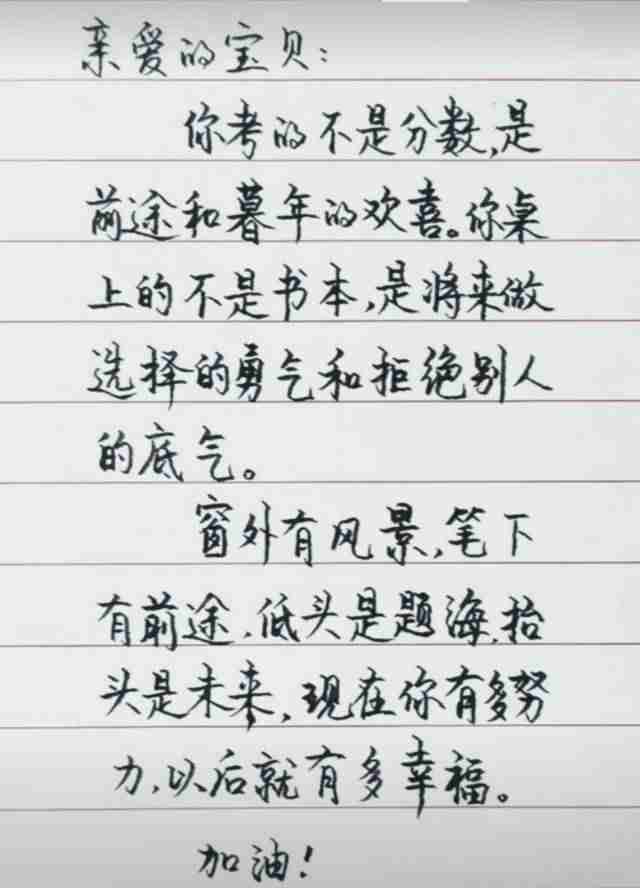 亲爱的宝贝：
你考的不是分数,是
前途和暮年的欢喜。你桌
上的不是书本,是将来做
选择的勇气和拒绝别人
的底气。
窗外有风景,笔下
有前途,低头是题海,抬
头是未来,现在你有多努
力,以后就有多幸福。
加油!